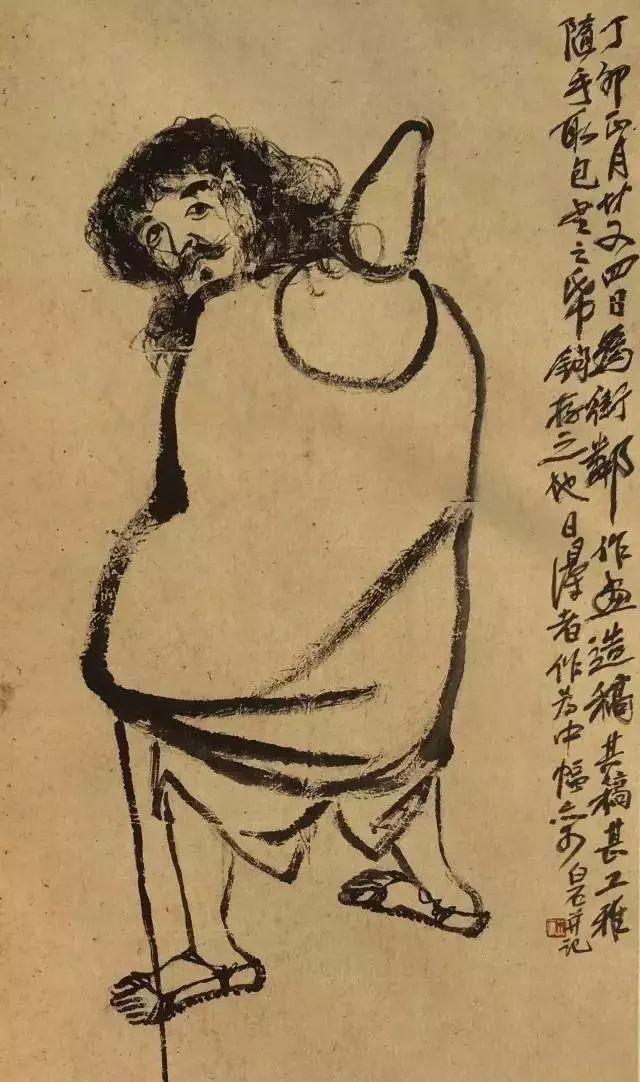 丁卯正月廿又四日為街鄰作畫造稿其稿甚工雅
隨手取包書之紙鉤存之他日得者作為中幅亦可 白石并記